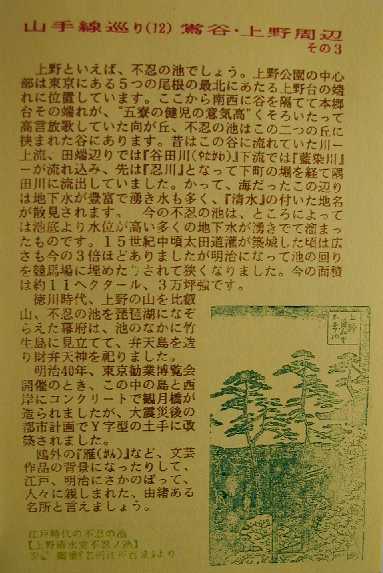 山手線巡り(12) 鶯谷・上野周辺
その3
上野といえば、不忍の池でしょう。上野公園の中心
部は東京にある5つの尾根の最北にあたる上野台の端
れに位置しています。ここから南西に谷を隔てて本郷
台その端れが、“五寮の健児の意気高”くそろいたって
高言放歌していた向が丘、不忍の池はこの二つの丘に
挟まれた谷にあります。昔はこの谷に流れていた川ー
上流、田端辺りでは『谷田川(やたがわ)』下流では『藍染川』
ーが流れ込み、先は『忍川』となって下町の堀を経て隅
田川に流出していました。かって、海だったこの辺り
は地下水が豊富で湧き水も多く、『清水』の付いた地名
が散見されます。 今の不忍の池は、ところによって
は池底より水位が高い多くの地下水が湧きでて溜まっ
たものです。15世紀中頃太田道灌が築城した頃は広
さも今の3倍ほどありましたが明治になって池の回り
を競馬場に埋めたりされて狭くなりました。今の面積
は約11ヘクタール、3万坪強です。
徳川時代、上野の山を比叡
山、不忍の池を琵琶湖になぞ
らえた幕府は、池のなかに竹
生島に見立てて、弁天島を造
り財弁天神を祀りました。
明治40年、東京勧業博覧会
開催のとき、この中の島と西
岸にコンクリートで観月橋が
造られましたが、大震災後の
都市計画でY字型の土手に改
築されました。
鴎外の『雁(がん)』など、文芸
作品の背景になったりして、
江戸、明治にさかのぼって、
人々に親しまれた、由緒ある
名所と言えましょう。
江戸時代の不忍の池
【上野清水堂不忍ノ池】
広重 画『名所江戸百景』より